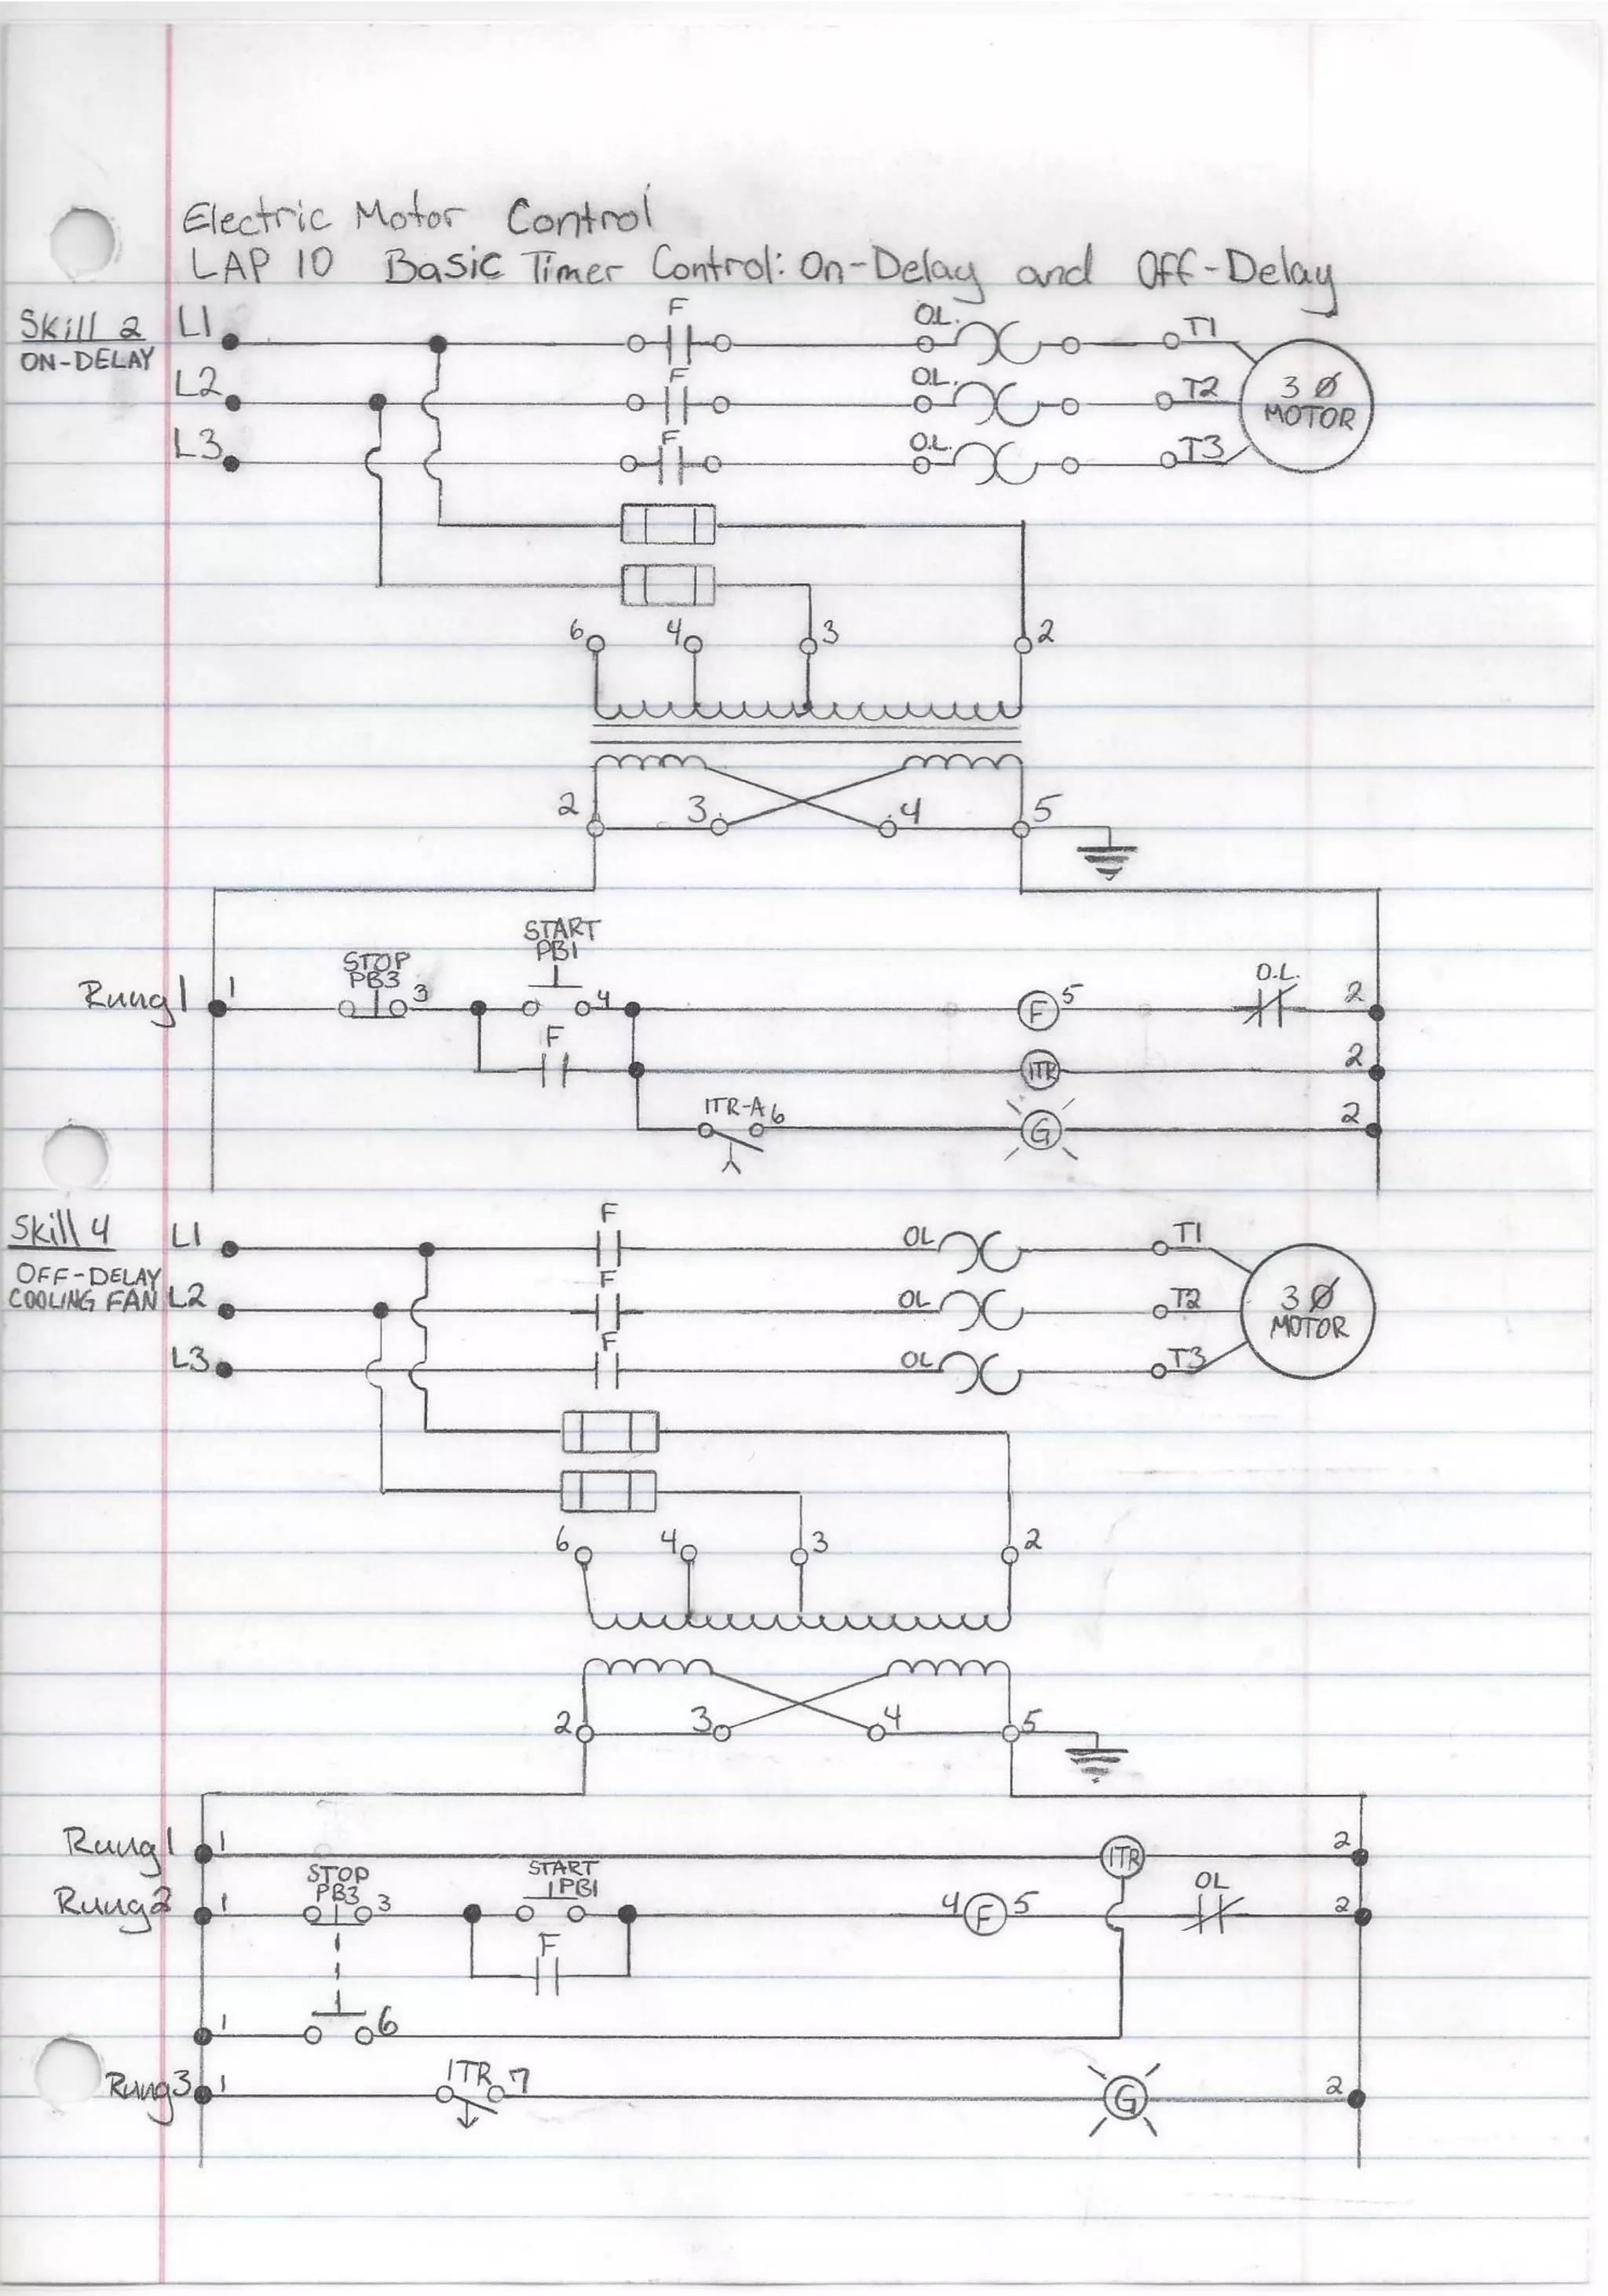 Electric Motor Control
LAP 10 Basic Timer Control: On-Delay and Off-Delay
Skill 2
ON-DELAY
L1 F O.L. T1
L2 F O.L. T2
L3 F O.L. T3
3 Ø
MOTOR
6 4 3 2
2 3 4 5
START
PB1
STOP
PB3
Rung 1 1 3 4 F 5 O.L. 2
F 1TR 2
1TR-A 6 G 2
Skill 4
OFF-DELAY
COOLING FAN
L1 F OL T1
L2 F OL T2
L3 F OL T3
3 Ø
MOTOR
6 4 3 2
2 3 4 5
Rung 1 1 1TR 2
STOP
PB3
START
PB1
Rung 2 1 3 4 F 5 OL 2
F
1 6
Rung 3 1 1TR 7 G 2